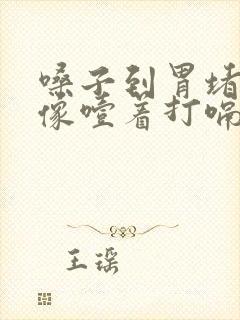 嗓子到胃堵
像噎着打嗝
王瑶